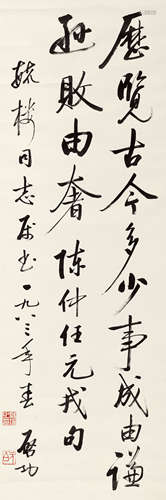 歷覽古今多少事成由謙
孫敗由奢陳仲任元戎句
毓樓同志属书一九八三年春
启功